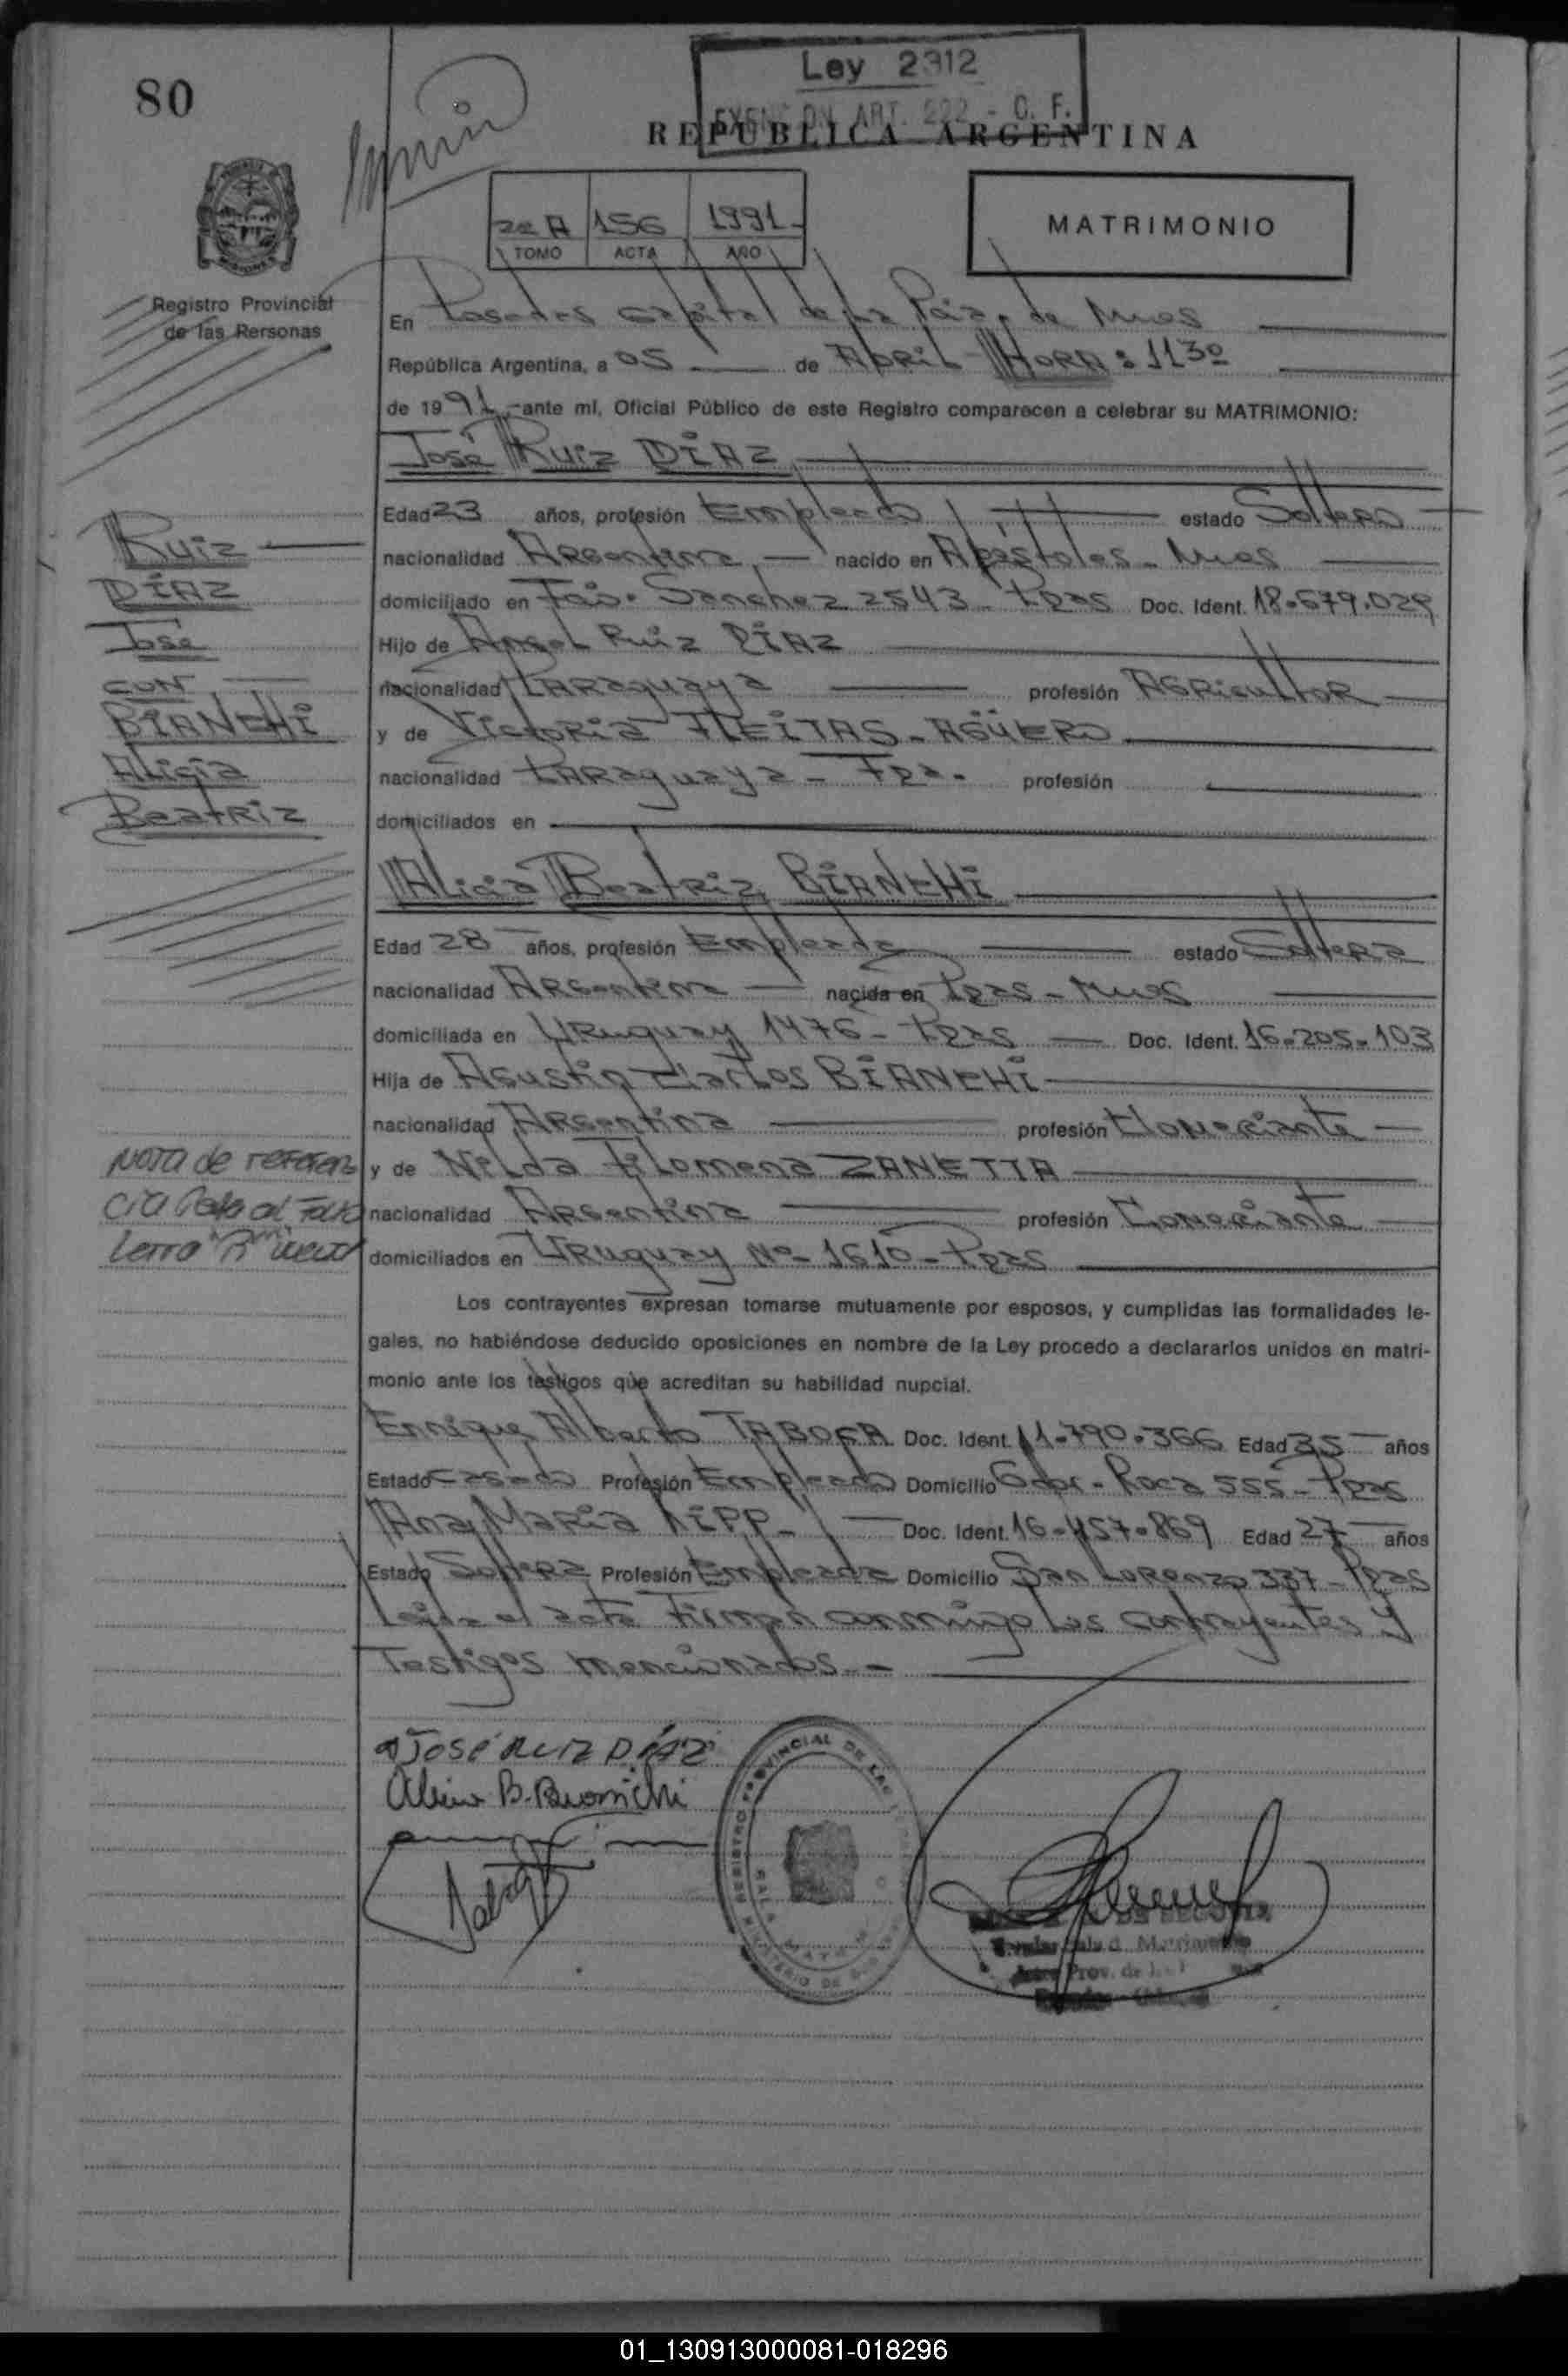 80
Ley 2312
EXENCION ART. 222 - C. F.
REPUBLICA ARGENTINA
2º A 156 1991-
TOMO ACTA AÑO
MATRIMONIO
Registro Provincial
de las Personas
En Posadas capital de la de Mnes
República Argentina, a 05 de Abril HORA: 1130
de 1991 ante mí, Oficial Público de este Registro comparecen a celebrar su MATRIMONIO:
José Ruiz DÍAZ
Edad 23 años, profesión Empleado estado Soltero
nacionalidad Argentina nacido en Apóstoles - Mnes
domiciliado en Sanchez 2543 - Pdas Doc. Ident. 18.679.029
Hijo de Angel Ruiz DÍAZ
nacionalidad Paraguaya profesión AGRicultor
y de Victoria FLEITAS - AGÜERO
nacionalidad Paraguaya - profesión
domiciliados en
Ruiz
DÍAZ
José
CON
BIANCHI
Alicia
Beatriz
Alicia Beatriz BIANCHI
Edad 28 años, profesión Empleada estado Soltera
nacionalidad Argentina nacida en Pdas - Mnes
domiciliada en Uruguay 1476 - Pdas Doc. Ident. 16.205.103
Hija de Agustin Carlos BIANCHI
nacionalidad Argentina profesión Comerciante
y de Nilda Filomena ZANETTA
nacionalidad Argentina profesión Comerciante
domiciliados en Uruguay Nº 1610 - Pdas
Nota de referen
cia al Folio
Letra "A"
Los contrayentes expresan tomarse mutuamente por esposos, y cumplidas las formalidades le-
gales, no habiéndose deducido oposiciones en nombre de la Ley procedo a declararlos unidos en matri-
monio ante los testigos que acreditan su habilidad nupcial.
Enrique Alberto Doc. Ident. 11.790.366 Edad 35 años
Estado Casado Profesión Empleado Domicilio Gdor. Roca 555 - Pdas
Ana María LIPP - Doc. Ident. 16.457.869 Edad 27 años
Estado Soltera Profesión Empleada Domicilio San Lorenzo 337 - Pdas
Leída el acta firman conmigo los contrayentes y
Testigos mencionados. -
JOSÉ RUIZ DÍAZ
Alicia B. Bianchi
REGISTRO PROVINCIAL DE LAS
MINISTERIO DE
DE SEGOVIA
Prov. de
01_130913000081-018296